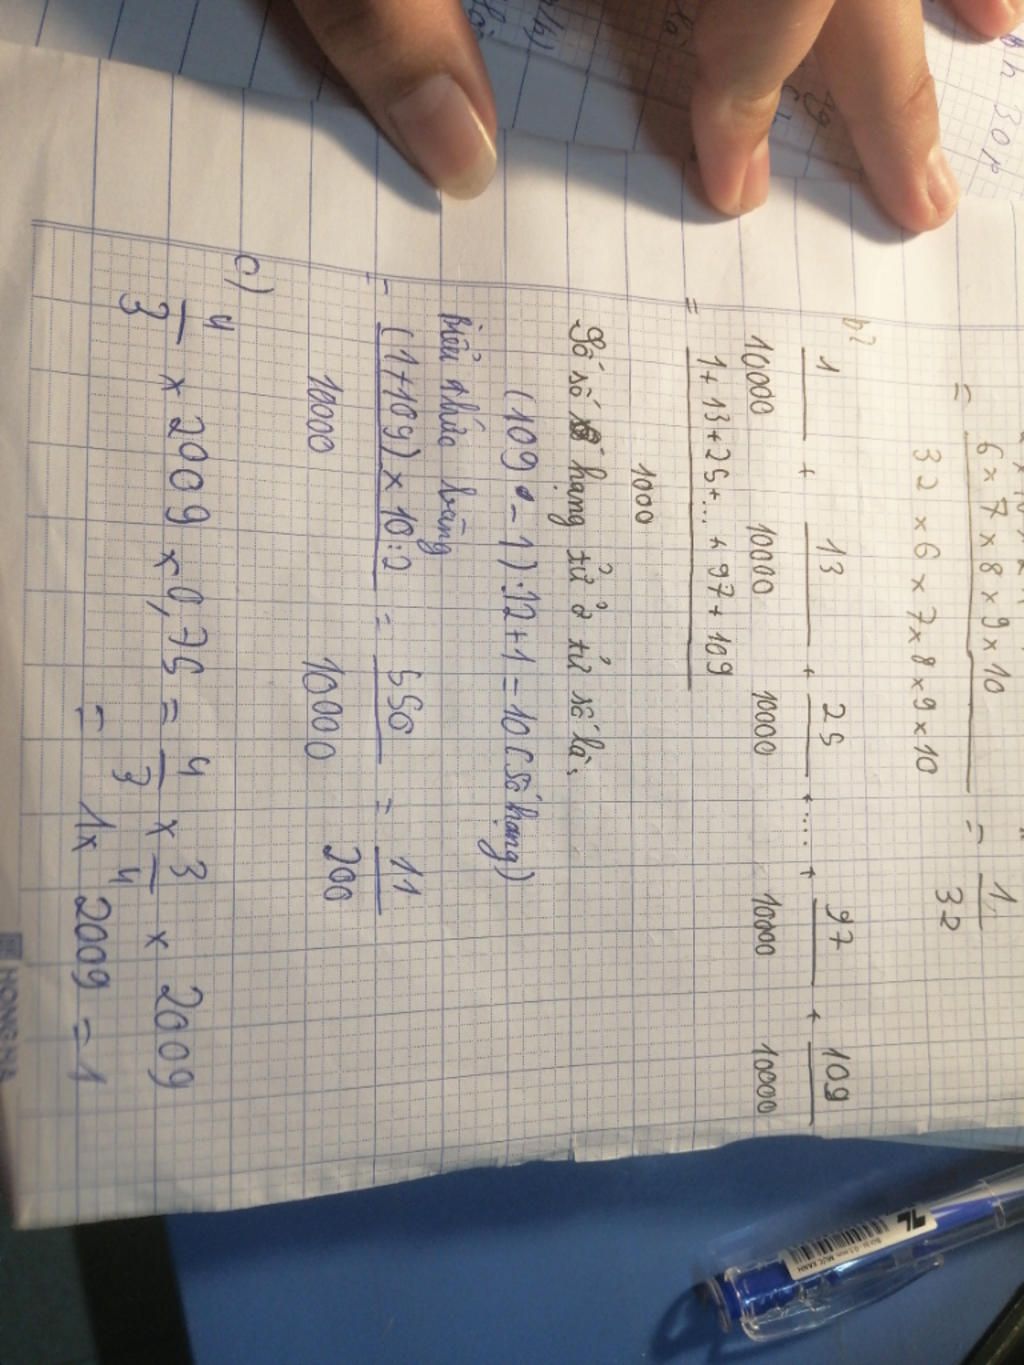 = 6 x 7 x 8 x 9 x 10 / 32 x 6 x 7 x 8 x 9 x 10 = 1 / 32
b) 1/10000 + 13/10000 + 25/10000 + .... + 97/10000 + 109/10000
= 1 + 13 + 25 + ... + 97 + 109 / 1000
Số số hạng tử ở tử số là:
(109 - 1) : 12 + 1 = 10 (số hạng)
Biểu thức bằng
- (1 + 109) x 10 : 2 / 10000 = 550 / 10000 = 11 / 200
c)
4/3 x 2009 x 0,75 = 4/3 x 3/4 x 2009
= 1 x 2009 = 1
HONG HA